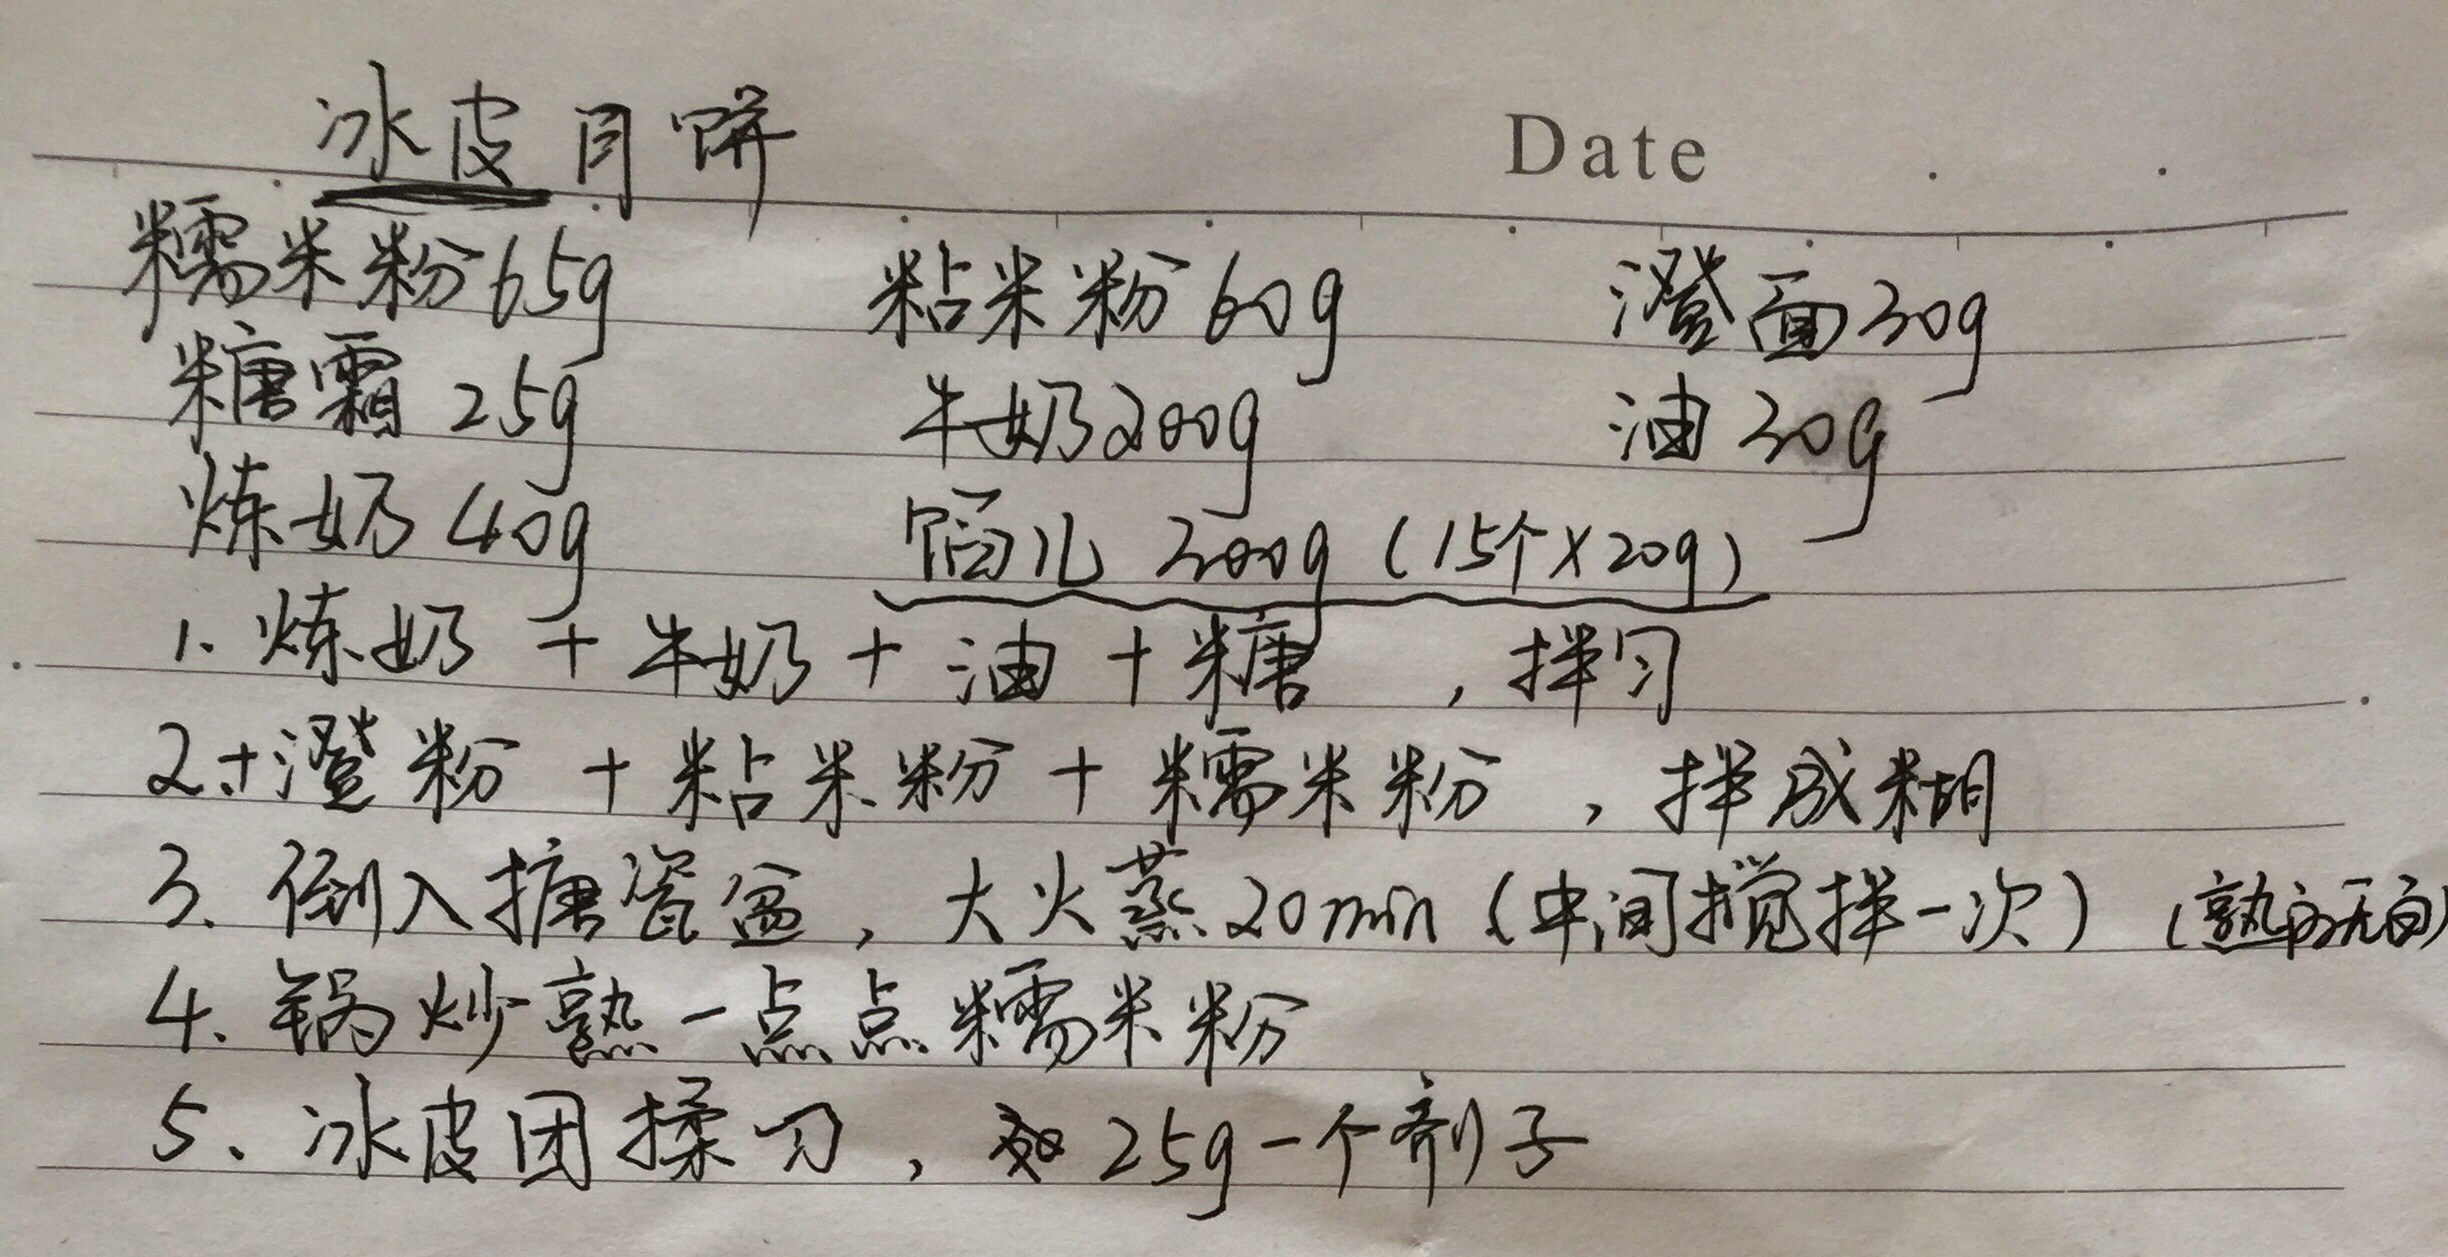 冰皮月饼 Date
糯米粉65g 粘米粉60g 澄面30g
糖霜 25g 牛奶200g 油30g
炼奶40g 馅儿 300g (15个×20g)
1. 炼奶 + 牛奶 + 油 + 糖 , 拌匀
2.+澄粉 + 粘米粉 + 糯米粉 , 拌成糊
3. 倒入搪瓷盆, 大火蒸20min (中间搅拌一次) (熟的无白)
4. 锅炒熟一点点糯米粉
5、冰皮团揉匀, 25g一个剂子